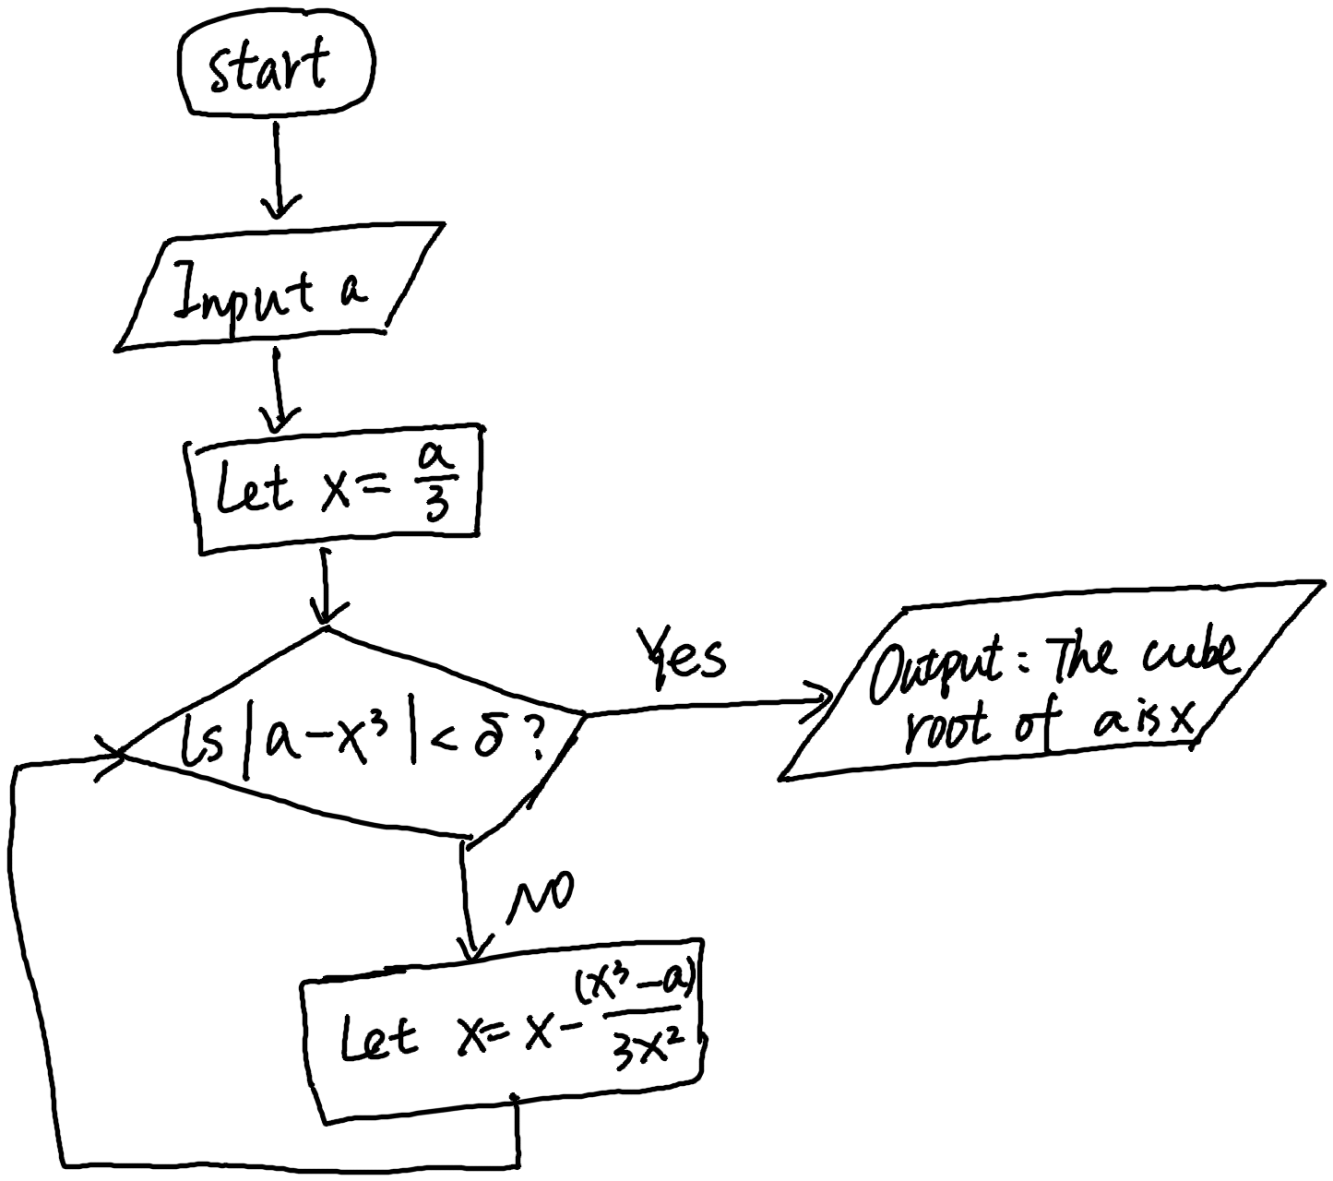 start
Input a
Let x = a/3
Yes
Is |a-x³| < δ?
Output: The cube
root of a is x
NO
Let x = x - (x³-a)/3x²